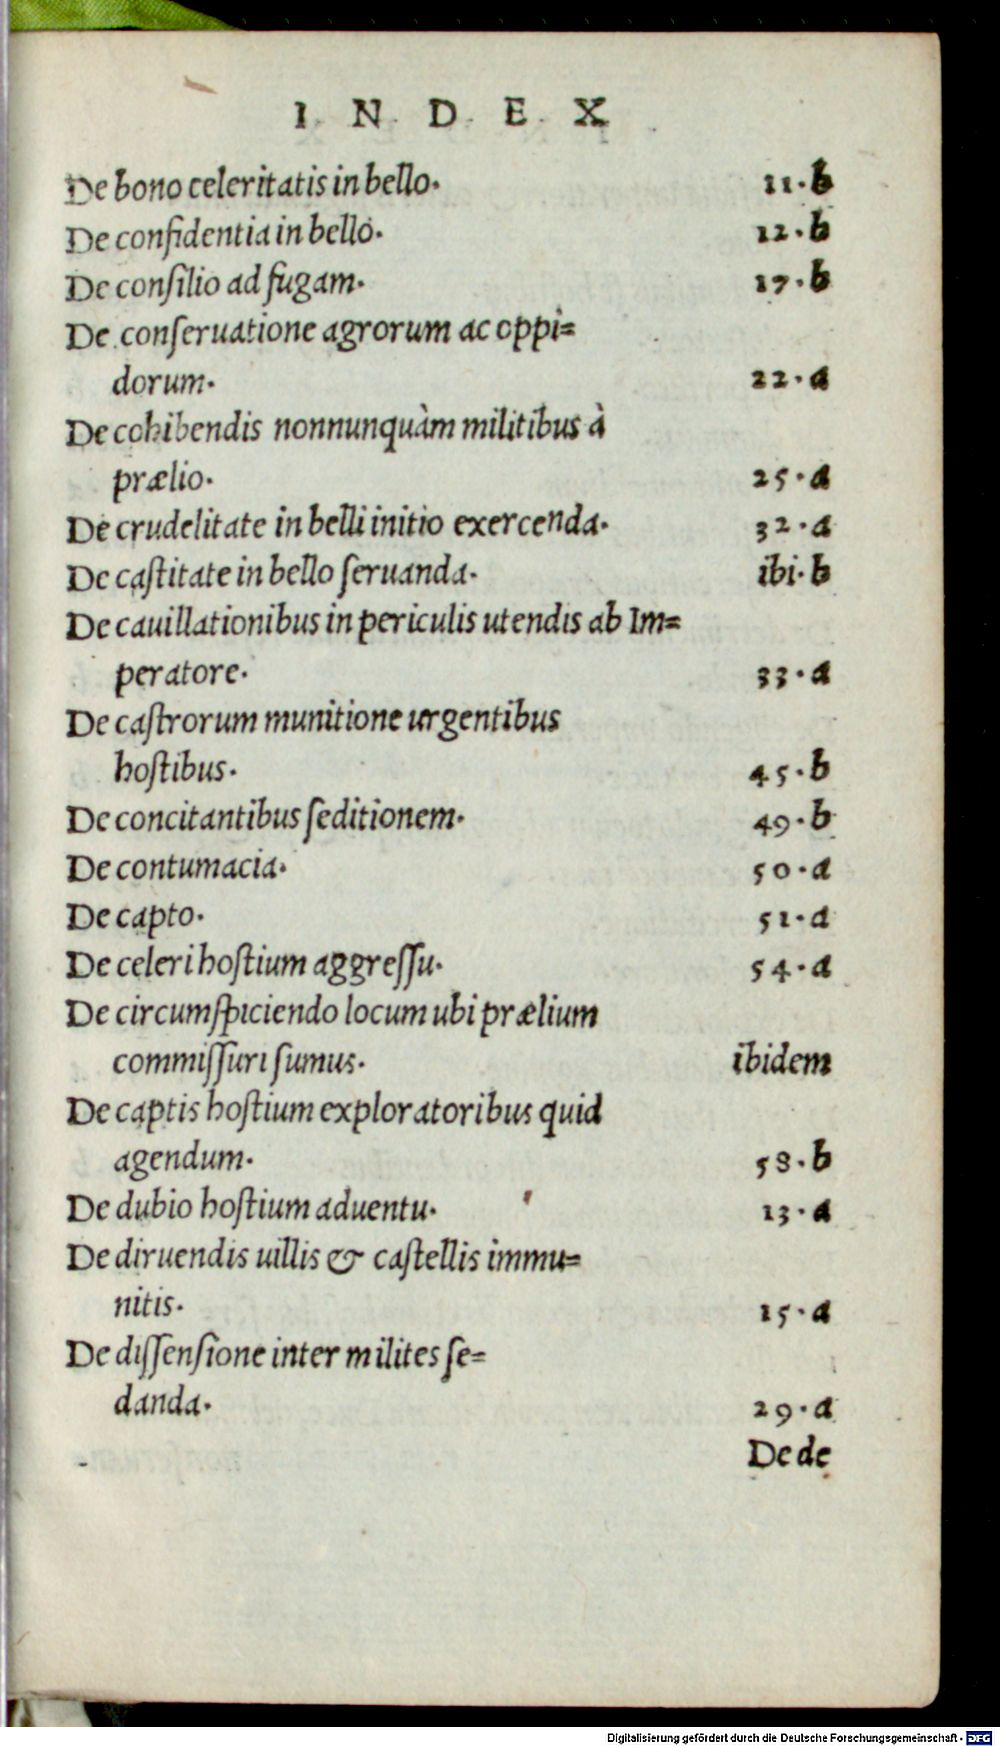 I N D E X
De bono celeritatis in bello. 11.b
De confidentia in bello. 12.b
De conſilio ad fugam. 17.b
De conſeruatione agrorum ac oppi=
dorum. 22.a
De cohibendis nonnunquàm militibus à
prælio. 25.a
De crudelitate in belli initio exercenda. 32.a
De caſtitate in bello ſeruanda. ibi.b
De cauillationibus in periculis utendis ab Im=
peratore. 33.a
De caſtrorum munitione urgentibus
hoſtibus. 45.b
De concitantibus ſeditionem. 49.b
De contumacia. 50.a
De capto. 51.a
De celeri hoſtium aggreſſu. 54.a
De circumſpiciendo locum ubi prælium
commiſſuri ſumus. ibidem
De captis hoſtium exploratoribus quid
agendum. 58.b
De dubio hoſtium aduentu. 13.a
De diruendis uillis & caſtellis immu=
nitis. 15.a
De diſſenſione inter milites ſe=
danda. 29.a
De de
Digitalisierung gefördert durch die Deutsche Forschungsgemeinschaft - DFG